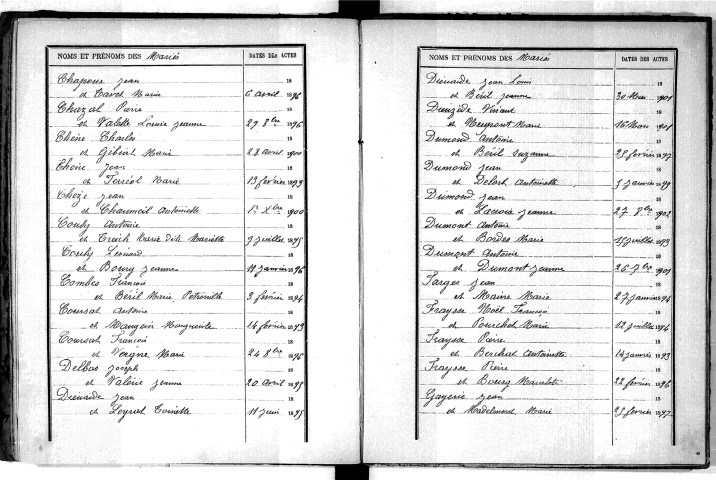 NOMS ET PRÉNOMS DES Mariés DATES DES ACTES
Chapoux Jean 18
et Tavet Marie 6 avril 1896
Chazal Pierre 18
et Valette Louise Jeanne 29 8bre 1896
Chène Charles 18
et Gibiat Marie 28 avril 1900
Chène Jean 18
et Terriol Marie 13 février 1899
Chèze Jean 18
et Chaumeil Antoinette 1er Xbre 1900
Couby Antoine 18
et Treich Marie dite Mariette 9 juillet 1895
Couby Léonard 18
et Bourg Jeanne 11 janvier 1896
Combes François 18
et Béril Marie Petronille 3 février 1894
Coursat Antoine 18
et Mougein Marguerite 14 février 1893
Coursat François 18
et Vergne Marie 24 8bre 1896
Delbos Joseph 18
et Valérie Jeanne 20 avril 1895
Dieuaide Jean 18
et Leyrat Toinette 11 juin 1895
NOMS ET PRÉNOMS DES Mariés DATES DES ACTES
Dieuaide Jean Louis 18
et Béril Jeanne 30 Mars 1901
Dieuzède Vincent 18
et Neupont Marie 16 Mars 1901
Dumond Antoine 18
et Béril Suzanne 25 février 1897
Dumond Jean 18
et Delort Antoinette 5 janvier 1899
Dumond Jean 18
et Lacroix Jeanne 27 8bre 1902
Dumont Antoine 18
et Bordes Marie 15 juillet 1893
Dumont Antoine 18
et Dumont Jeanne 26 7bre 1901
Farges Jean 18
et Maine Marie 27 janvier 1894
Fraysse Noël François 18
et Pourchet Marie 12 juillet 1894
Fraysse Pierre 18
et Berchat Antoinette 14 janvier 1893
Fraysse Pierre 18
et Bourg 22 février 1896
Gayerie Jean 18
et Madelmont Marie 25 février 1897